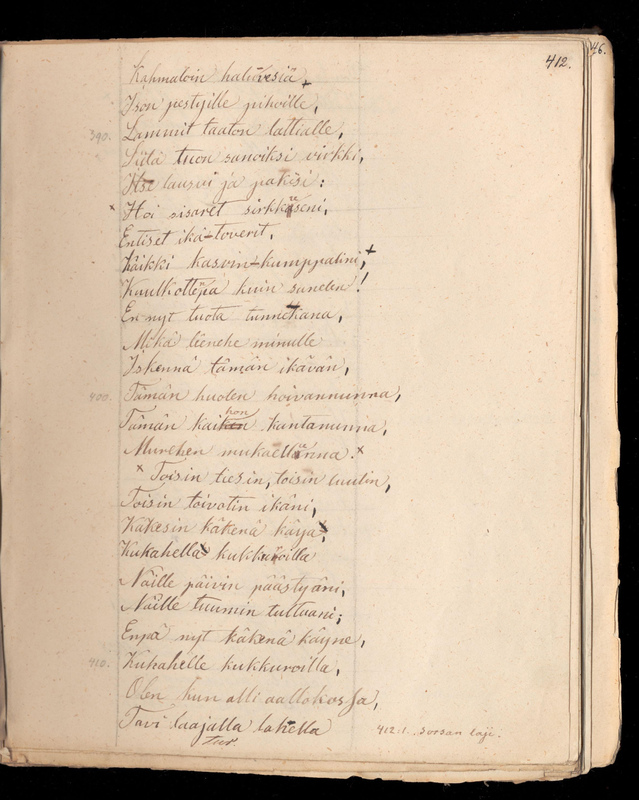 46.
412.
Kahmaloin halu vesiä
Ison pestyille pihoille,
390. Lammit taaton lattialle,
Siitä tuon sanoiksi virkki,
Itse lausui ja pakisi:
Hoi sisaret sirkkuseni,
Entiset ikä-toverit,
Kaikki kasvin-kumppalini,
Kuulkottepa kuin sanelen!
En nyt tuota tunnekana,
Mikä lienehe minulle
Iskennä tämän ikävän,
400. Tämän huolen hoivannunna,
Tämän kaihon kantanunna,
Murehen mukaellunna.
Toisin tiesin, toisin luulin,
Toisin toivotin ikäni,
Käkesin käkenä käyä,
Kukahella kukkuroilla
Näille päivin päästyäni,
Näille tuumin tultuani;
Enpä nyt käkenä käyne,
410. Kukahelle kukkuroilla,
Olen kun alli aallokossa,
Tavi laajalla lahella
412.1. sorsan laji.